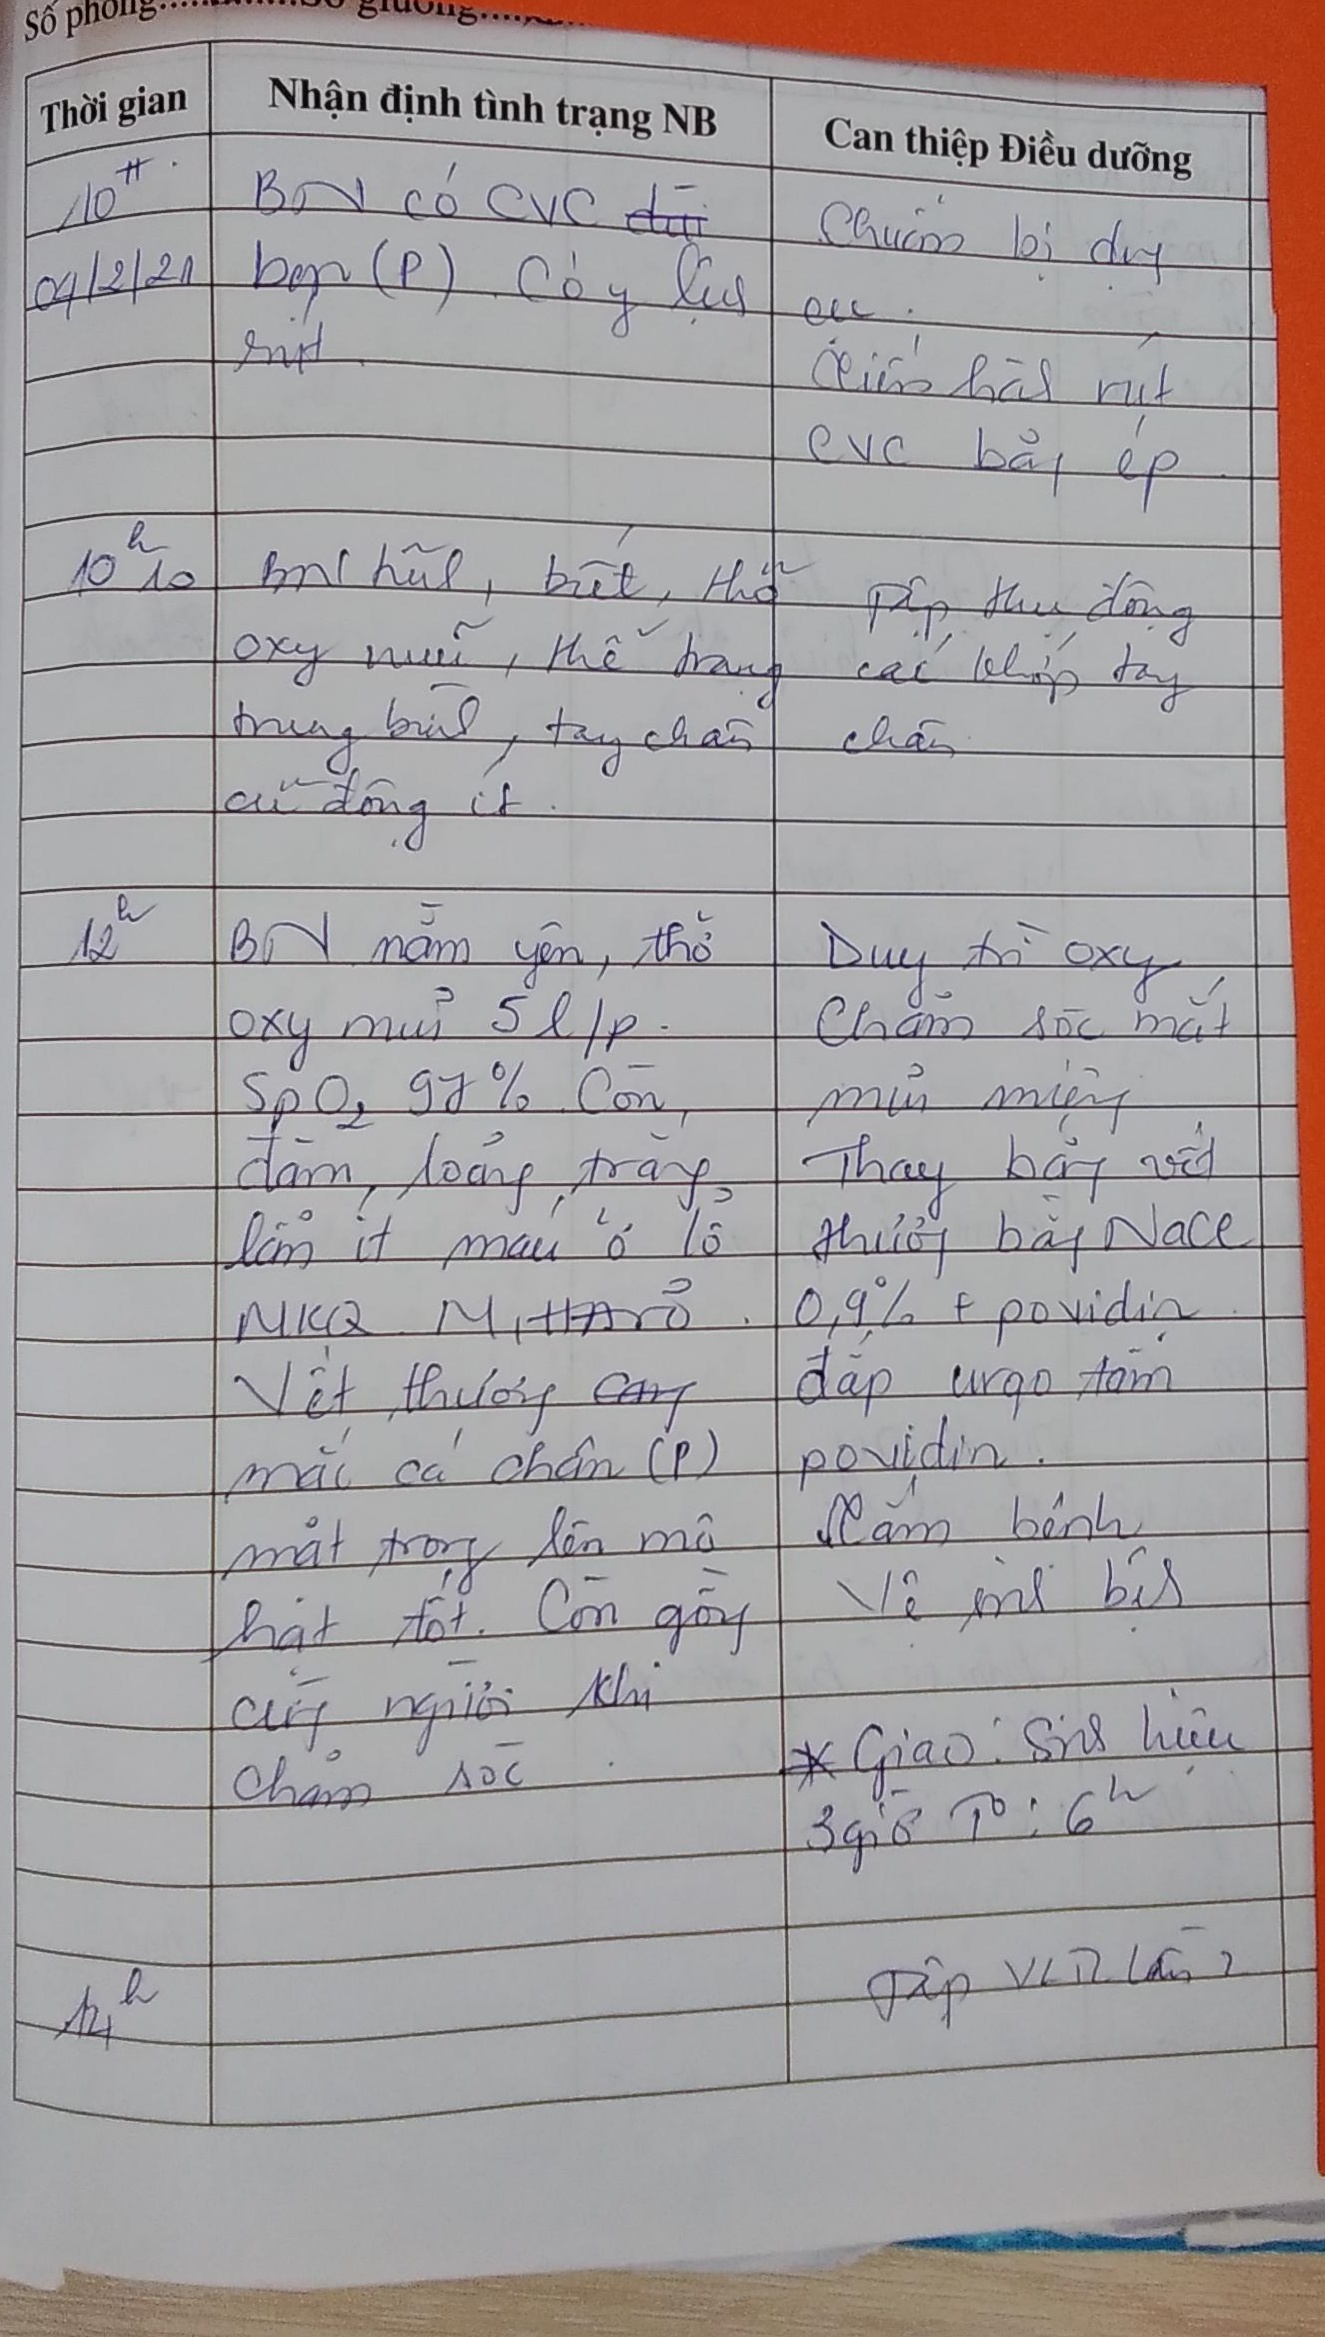 Số phòng............Số giường.......
Thời gian
Nhận định tình trạng NB
Can thiệp Điều dưỡng
10H
09/2/21
BN có CVC
bẹn (P). Có y lệnh
rút.
Chuẩn bị dụng
cụ.
Tiến hành rút
CVC băng ép
10h10
BN tỉnh, biết, thở
oxy mũi, thể trạng
trung bình, tay chân
cử động ít.
Tập thụ động
các khớp tay
chân
12h
BN nằm yên, thở
oxy mũi 5l/p.
SpO2 97%. Còn
đàm, loãng, trắng,
lẫn ít máu ở lỗ
MKQ. M, HA rõ.
Vết thương
mắc cá chân (P)
mặt trong lên mô
hạt tốt. Còn gồng
cứng người khi
chăm sóc.
Duy trì oxy
Chăm sóc mắt
mũi miệng
Thay băng vết
thương bằng NaCl
0,9% + povidin.
đắp urgo tẩm
povidin.
Nằm bệnh
Vệ sinh
* Giao: Sinh hiệu
3giờ T°: 6h
14h
Tập VLTL lần 2